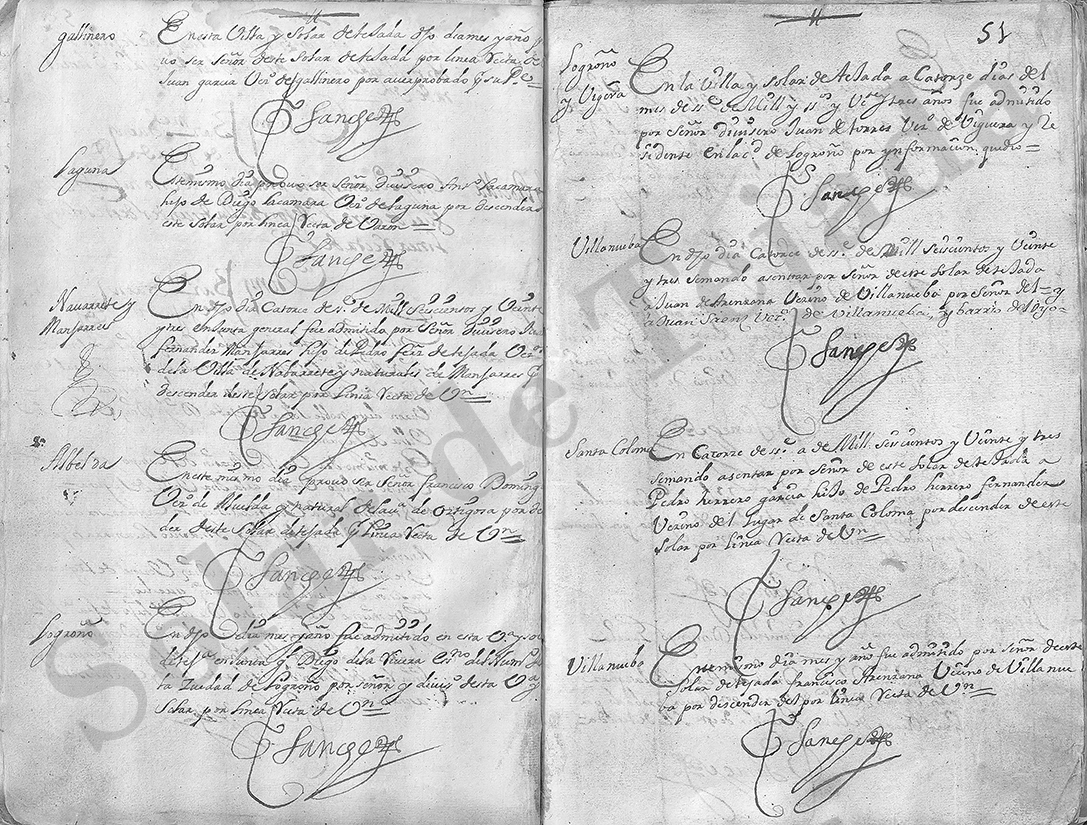 gallinero
En esta Villa y Solar de tejada dho dia mes y año
ser Señor deste Solar de tejada por linea Recta de
Juan garcia Vº de gallinero por aver probado
Sanchez
Laguna
Este mismo dia probo ser Señor Divisero
hijo de Diego Lacamara Vº de laguna por descender
este Solar por linea Recta de Varon
Sanchez
Navarrete y
Manjarres
En dho dia Catorce de de Mill Seiscientos y Veinte
y tres en Junta general fue admitido por Señor Divisero
fernandez Manjarres hijo de Pedro de tejada
de la Villa de Nabarrete y naturales de Manjarres
descender deste Solar por linia Recta de Vn
Sanchez
Albelda
En este mismo dia probo ser Señor Francisco Doming
Vº de Alvelda y natural de la de Ortigosa por
der deste Solar de tejada linea Recta de Vn
Sanchez
Logroño
En dho dia mes y año fue admitido en esta
Diego de la Rivera del
ta Ziudad de Logroño por señor y divisº desta
Solar por linea Recta de Vn
Sanchez
51
Logroño
y Vigera
En la Villa y Solar de tejada a Catorze dias del
mes de de Mill y y tres años fue admitido
por Señor divisero Juan de torres Vº de Viguera y Re
sidente en la cd de Logroño por ynformacion que dio
Sanchez
Villanueba
En dho dia Catorce de de Mill Seiscientos y Veinte
y tres semando asentar por Señor de este Solar de tejada
a Juan de Arenzana Vezino de Villanueba por Señor del y
a Juan Saenz de Villanueba, y barrio del Oyo
Sanchez
Santa Coloma
En Catorze de de Mill Seiscientos y Veinte y tres
semando asentar por Señor de este Solar de tejada a
Pedro herrero garcia hijo de Pedro herrero fernandez
Vezino del lugar de Santa Coloma por descender de este
Solar por linea Recta de Vn
Sanchez
Villanueba
En el mismo dia mes y año fue admitido por Señor de este
Solar de tejada francisco Arenzana Vezino de Villanue
va por descender del por linea Recta de Vn
Sanchez
Solar de Tejada